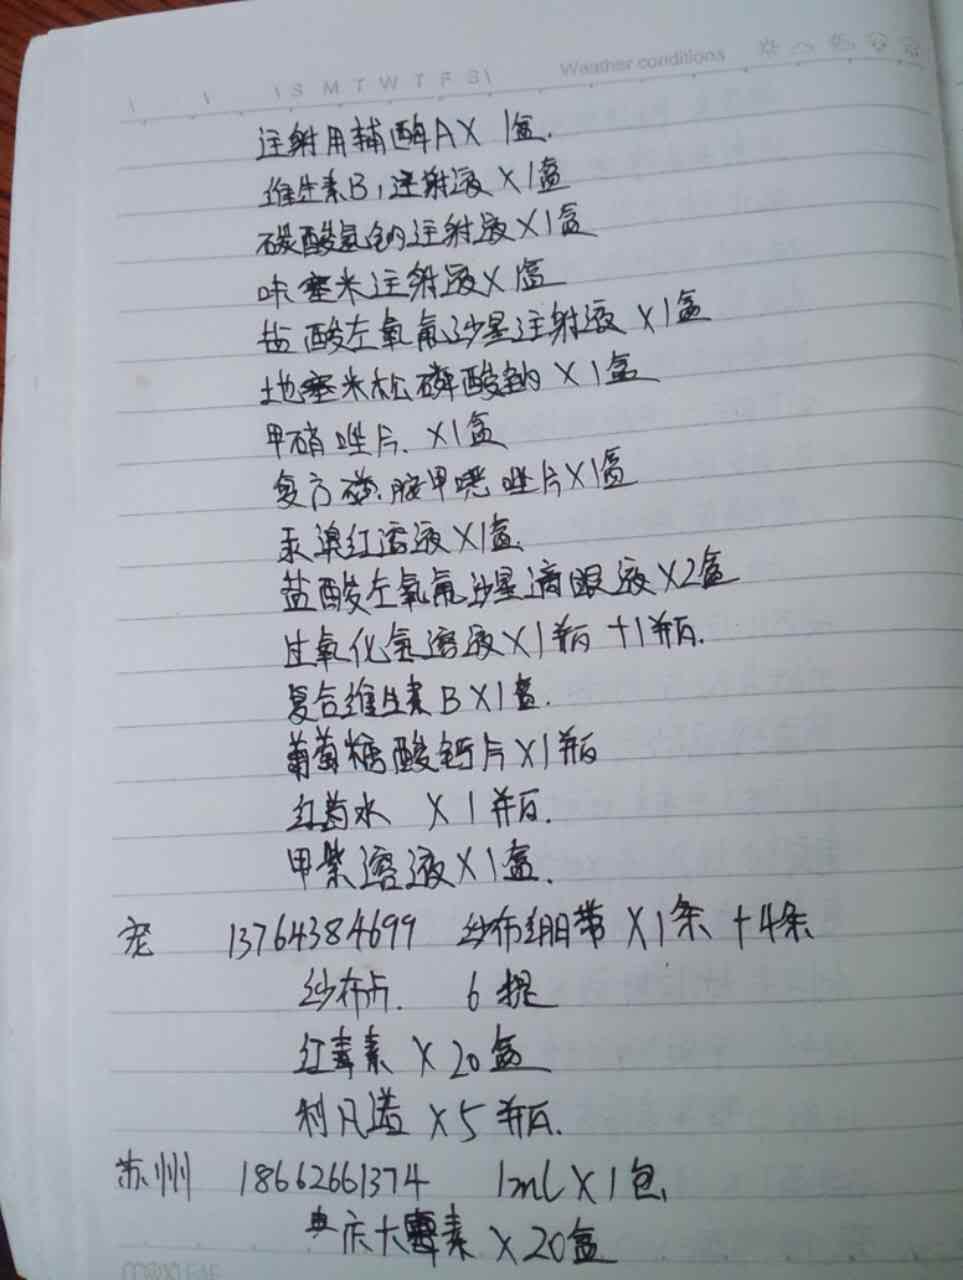 \ \ \S M T W T F S\ Weather conditions
注射用辅酶A X 1盒.
维生素B1注射液 X1盒
碳酸氢钠注射液X1盒
呋塞米注射液X1盒
盐酸左氧氟沙星注射液 X1盒
地塞米松磷酸钠 X1盒
甲硝唑片. X1盒
复方磺胺甲噁唑片X1盒
汞溴红溶液X1盒
盐酸左氧氟沙星滴眼液X2盒
过氧化氢溶液X1瓶 +1瓶.
复合维生素B X1盒.
葡萄糖酸钙片X1瓶
红药水 X1瓶.
甲紫溶液X1盒.
宠 13764384699 纱布绷带 X1条 +4条
纱布片. 6提
红霉素 X20盒
利凡诺 X5瓶.
苏州 18662661374 1ml X1包
庆大霉素 X20盒